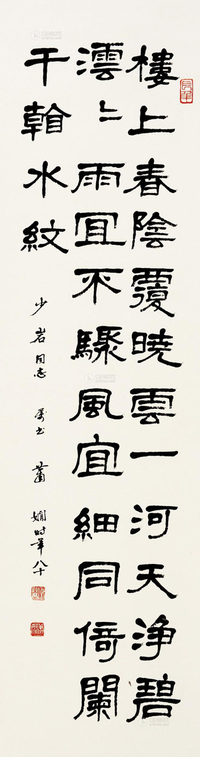 樓上春陰覆曉雲一河天淨碧
澐〻雨宜不驟風宜細同倚闌
干翰水紋
少岩同志 屬書 蕭嫻時年八十